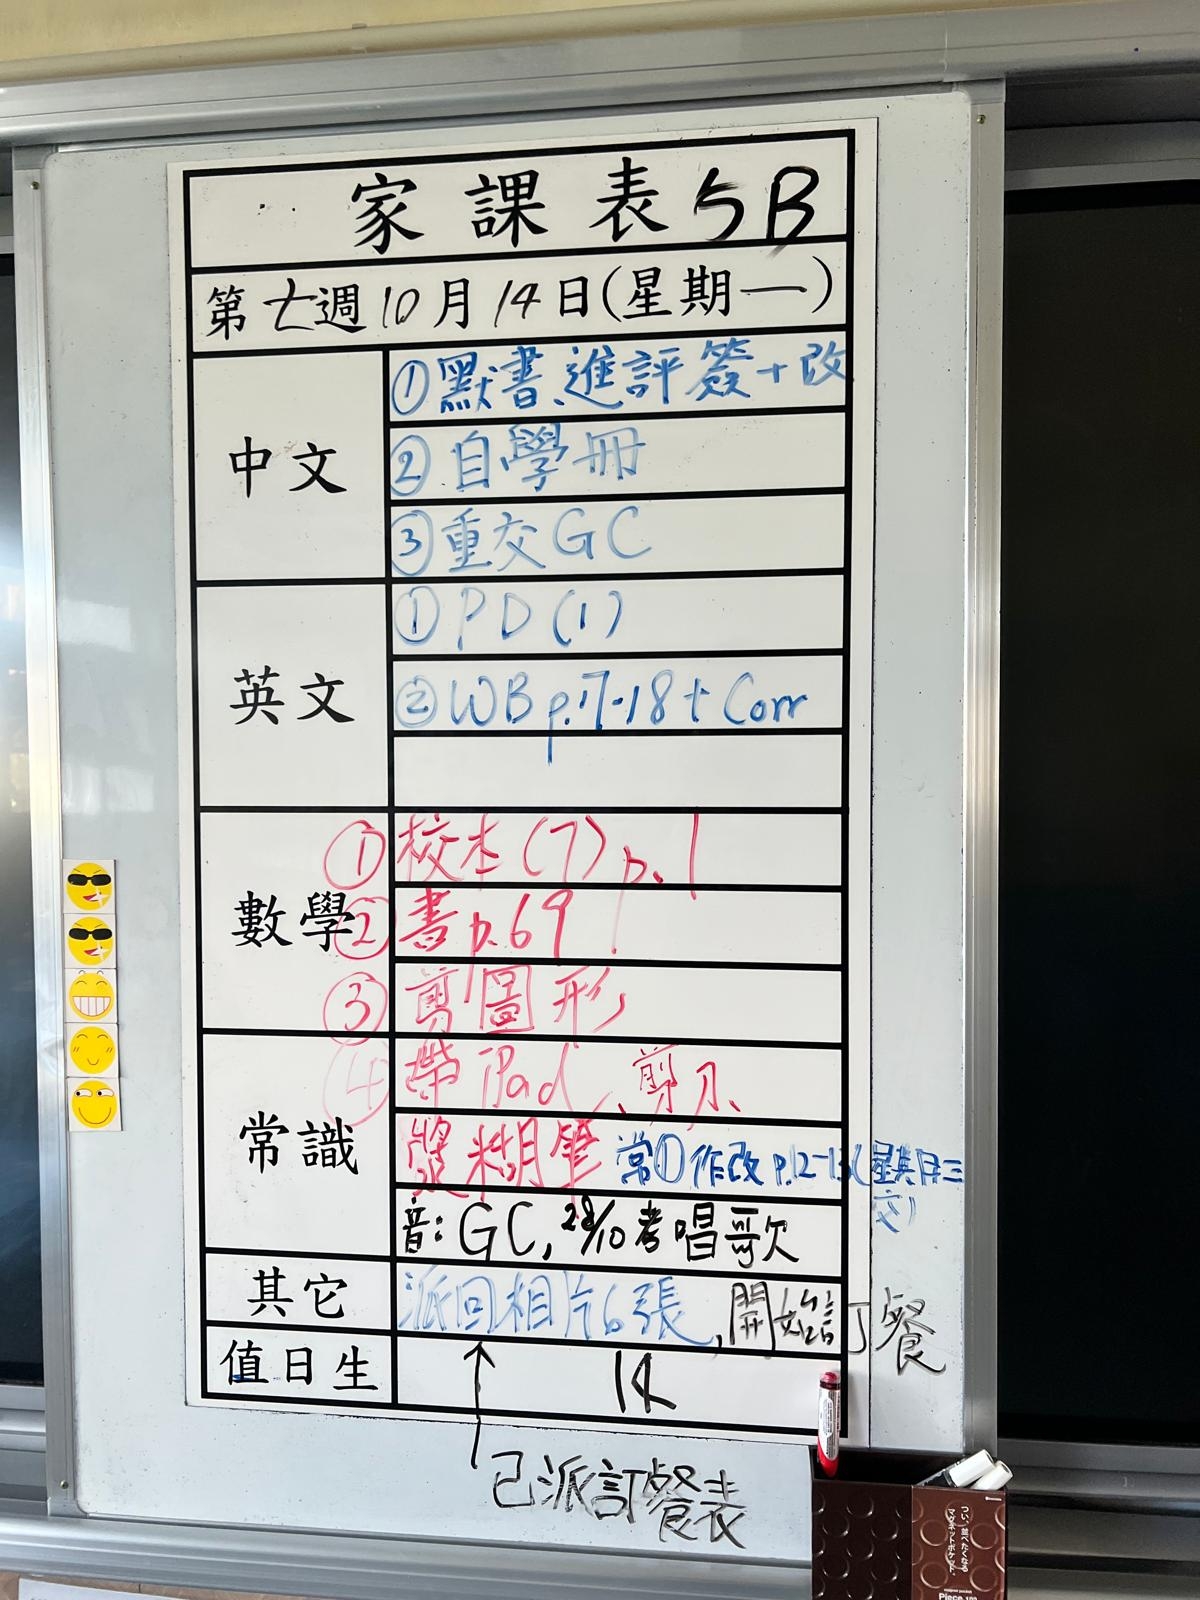 家課表 5B
第七週10月14日(星期一)
中文
①默書、進評簽+改
②自學冊
③重交GC
英文
①PD(1)
②WB p.17-18 + Corr
數學
①校本(7) p.1
②書p.69
③剪圖形
常識
④帶iPad、剪刀、
漿糊筆 常①作改 p.12-13(星期三
交)
音: GC, 28/10考唱歌
其它
派回相片6張,開始訂餐
值日生
14
已派訂餐表
つい、並べたくなる
マグネットポケット。
Piece